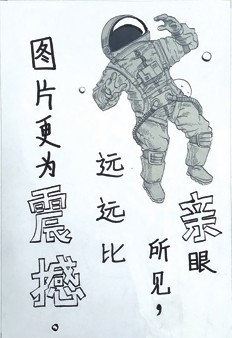 亲眼
所见，
远远比
图片更为震撼。